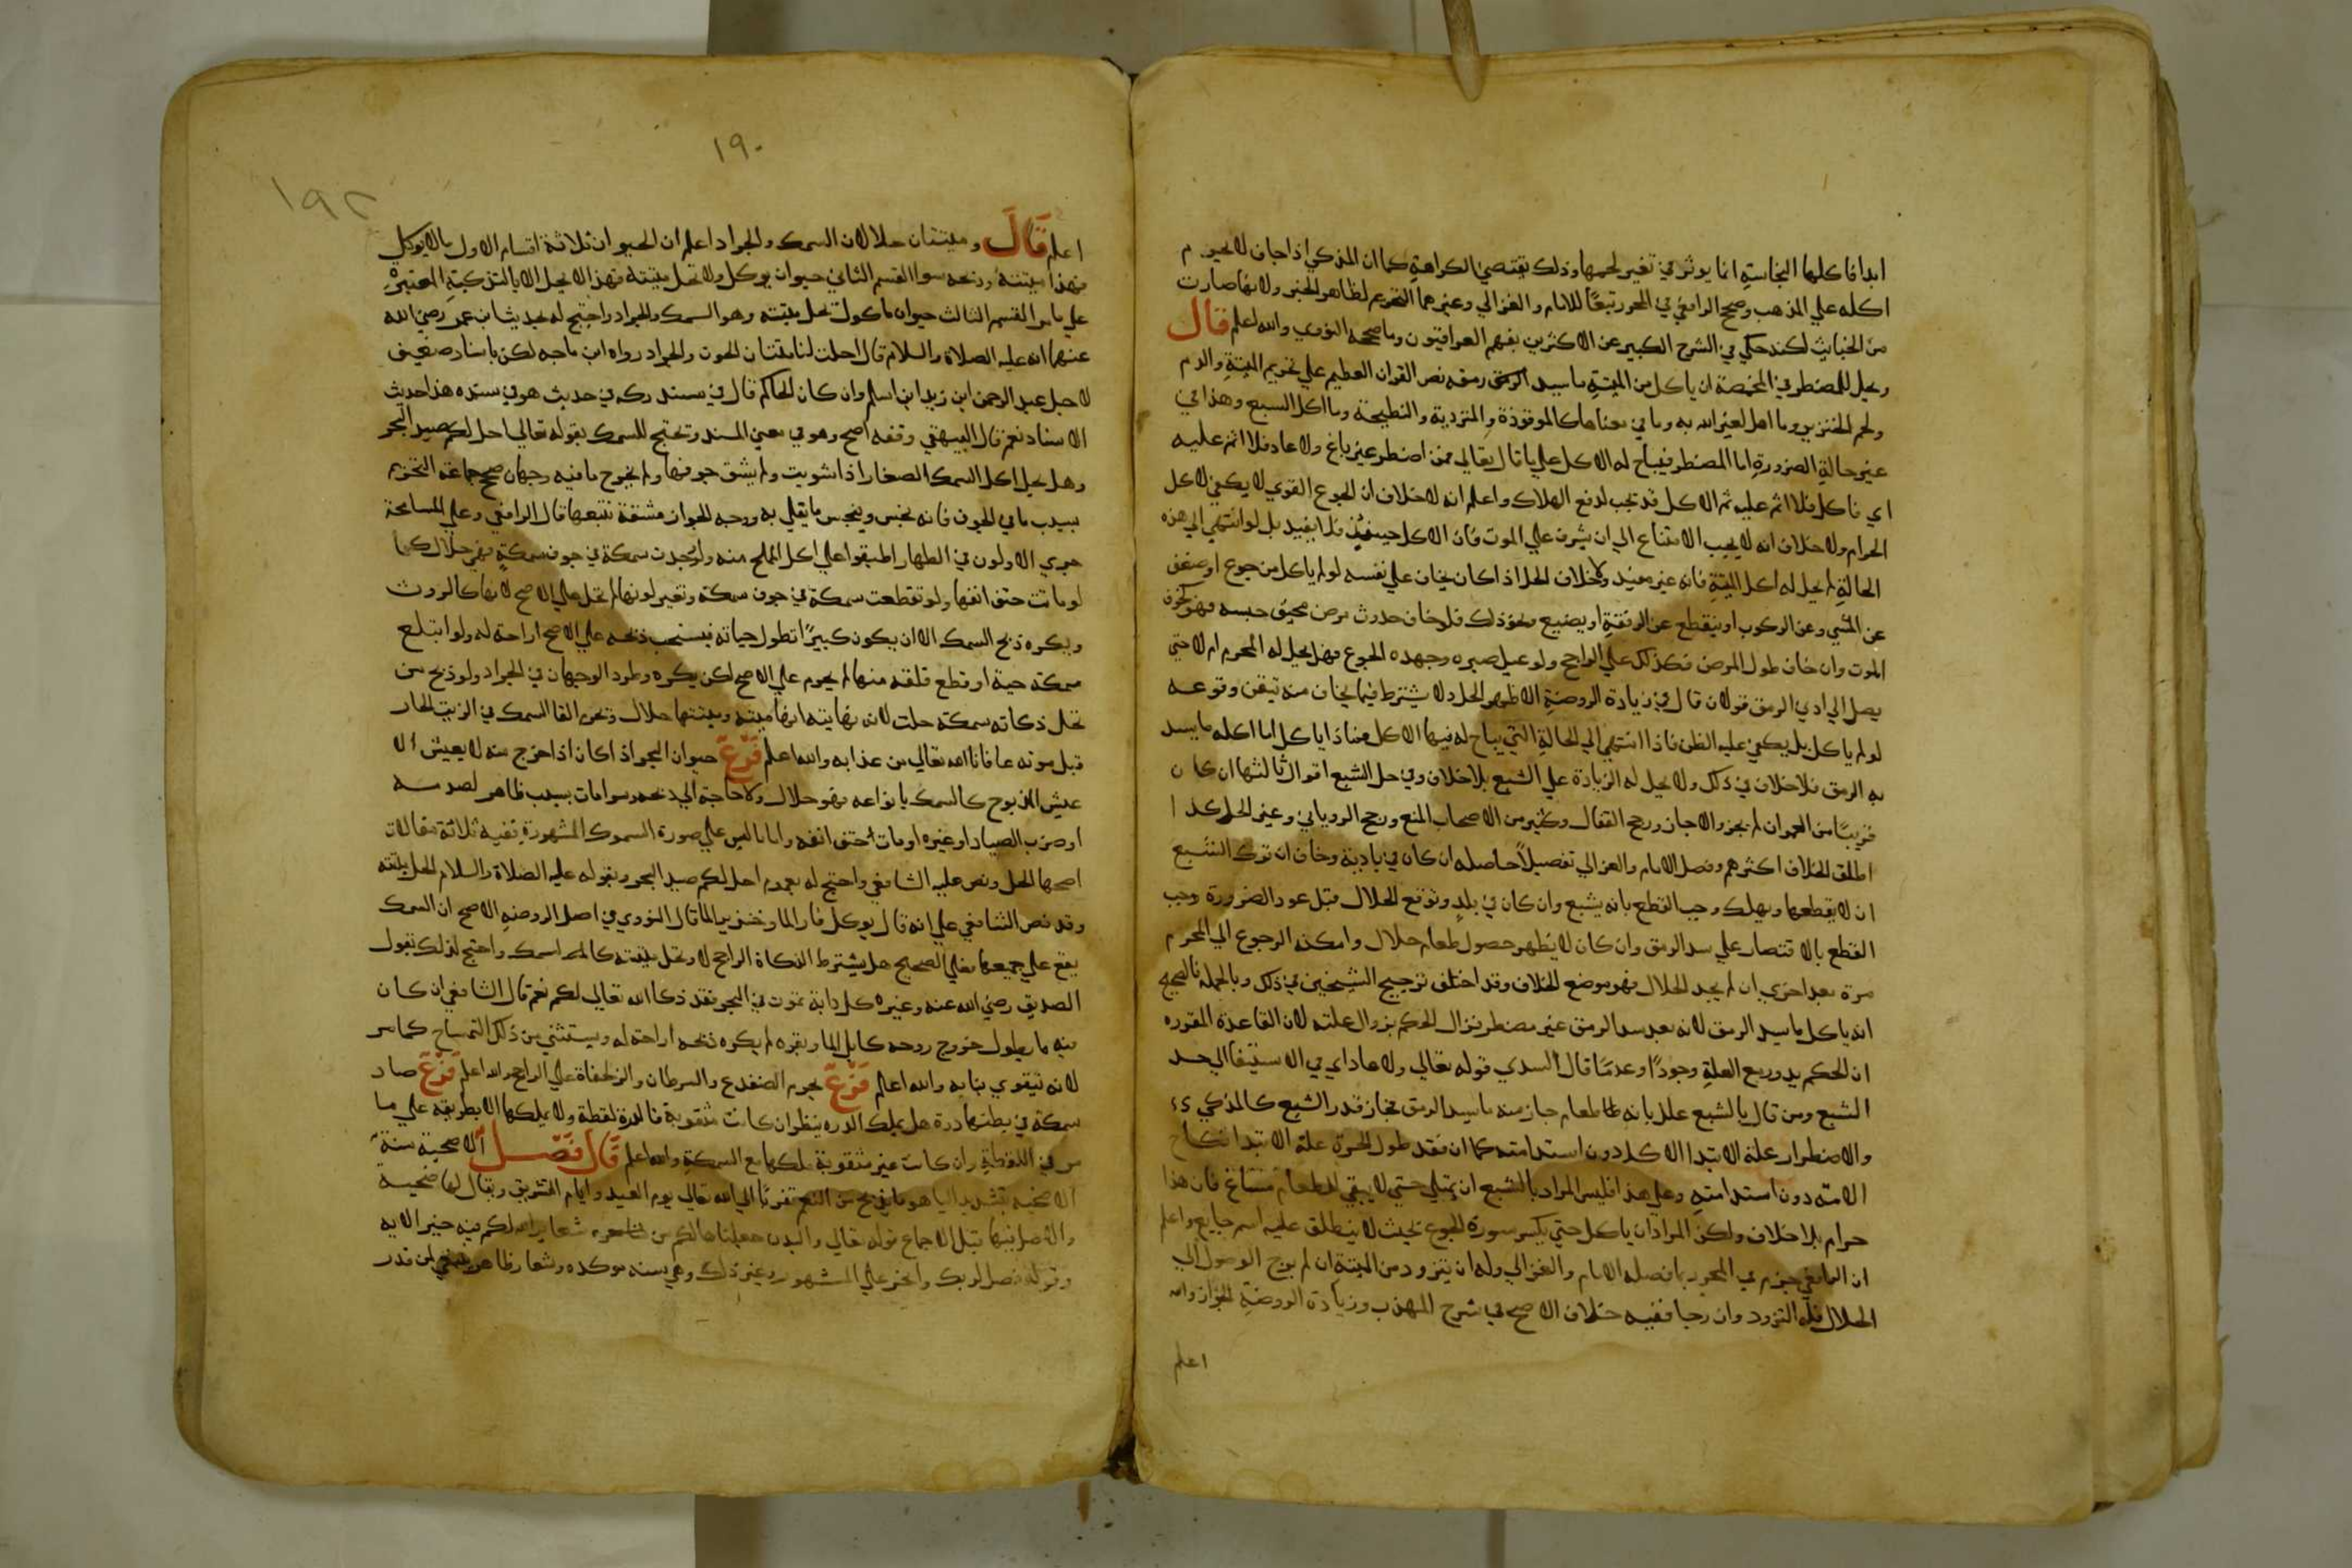 ابدا فاكلها النجاسة انما يوثر في تغير لحمها وذلك يقتضي الكراهة كما ان المذكي اذا جاف لا يحرم
اكله علي المذهب وصحح الرافعي في المحرر تبعًا للامام والغزالي وغيرهما التحريم لظاهر الخبر ولانها صارت
من الخبايث لكنه حكي في الشرح الكبير عن الاكثرين بفهم العراقيون وما صححه النووي والله اعلم قال
ويحل للمضطر في المخمصة ان ياكل من الميتة ما سيد الرمق رمقه نص القران العظيم علي تحريم الميتة والدم
ولحم الخنزير وما اهل لغير الله به وما في معناها كالموقوذة والمتردية والنطيحة وما اكل السبع وهذا في
غير حالة الضرورة اما المضطر فيباح له الاكل علي ما قال تعالي فمن اضطر غير باغ ولا عاد فلا اثم عليه
اي فاكل فلا اثم عليه ثم الاكل قد تجب لدفع الهلاك واعلم انه لا خلاف ان الجوع القوي لا يكفي لاكل
الحرام ولا خلاف انه لا يجب الامتناع الي ان يشرف علي الموت فان الاكل حينئذ فلا يفيد بل لو انتهي الي هذه
الحالة لم يحل له اكل الميتة فانه غير مفيد ولا خلاف الحل اذا كان يخاف علي نفسه لو لم ياكل من جوع او ضعف
عن المشي وعن الركوب او ينقطع عن الرفقة او يضيع ونحو ذلك فلو خاف حدوث مرض مخيف حبسه فهو كخوف
الموت وان خاف طول المرض فكذلك علي الراجح ولو عيل صبره وجهده الجوع فهل يحل له المحرم ام لا حتي
يصل الي ادي الرمق قولان قال في زيادة الروضة الاظهر الحل ولا يشترط فيما يخاف منه تيقن وقوعه
لو لم ياكل بل يكفي غلبه الظن فاذا انتهي الي الحالة التي يباح له فيها الاكل فماذا ياكل اما اكله ما يسد
به الرمق فلا خلاف في ذلك ولا يحل له الزيادة علي الشبع بلا خلاف وفي حل الشبع اقوال ثالثها ان كان
قريبًا من العمران لم يجز والا جاز ورجح القفال وكثير من الاصحاب المنع ورجح الروياني وغيره الحل كذا
اطلق الخلاف اكثرهم وفصل الامام والغزالي تفصيلاً حاصله ان كان في بادية وخاف ان ترك الشبع
ان لا يقطعها ويهلك وجب القطع بانه يشبع وان كان في بلدٍ وتوقع الحلال قبل عود الضرورة وجب
القطع بالاقتصار علي سد الرمق وان كان لا يظهر حصول طعام حلال وامكنه الرجوع الي المحرم
مرة بعد اخري ان لم يجد الحلال فهو موضع الخلاف وقد اختلف ترجيح الشيخين في ذلك وبالجملة فالصحيح
انه ياكل ما يسد الرمق لانه بعد سد الرمق غير مضطر فزال الحكم بزوال علته لان القاعدة المقرره
ان الحكم يدور مع العلة وجودًا وعدمًا قال السدي قوله تعالي ولا عاد اي في الاستيفا الي حد
الشبع ومن قال بالشبع علل بانه طعام جاز منه ما يسد الرمق فجاز قدر الشبع كالمذكي
والاضطرار علة الابتدا الاكل دون استدامته كما ان فقد طول الحرة علة الابتدا نكاح
الامة دون استدامته وعلي هذا فليس المراد بالشبع ان يمتلي حتي لا يبقي للطعام مساغ فان هذا
حرام بلا خلاف ولكن المراد ان ياكل حتي يكسر سورة الجوع بحيث لا ينطلق عليه اسم جايع واعلم
ان الرافعي جزم في المحرر بما فصله الامام والغزالي وله ان يتزود من الميتة ان لم يرج الوصول الي
الحلال فله التزود وان رجا ففيه خلاف الاصح في شرح المهذب وزيادة الروضة الجواز والله
اعلم
١٩٠
١٩٢
اعلم قال وميتتان حلالان السمك والجراد اعلم ان الحيوان ثلاثة اقسام الاول ما لا يوكل
فهذا ميتته وذبحه سوا القسم الثاني حيوان يوكل ولا تحل ميتته فهذا لا يحل الا بالتزكية المعتبرة
علي ما مر القسم الثالث حيوان ماكول تحل ميتته وهو السمك والجراد واحتج له بحديث ابن عمر رضي الله
عنهما انه عليه الصلاة والسلام قال احلت لنا ميتتان الحوت والجراد رواه ابن ماجه لكن باسناد ضعيف
لاجل عبد الرحمن ابن زيد ابن اسلم وان كان الحاكم قال في مستدركه في حديث هو في سنده هذا حديث
الاسناد نعم قال البيهقي وقفه اصح وهو في معني المسند وتحتج للسمك بقوله تعالي احل لكم صيد البحر
وهل يحل اكل السمك الصغار اذا شويت ولم يشق جوفها ولم يخرج ما فيه وجهان صحح جماعة التحريم
بسبب ما في الجوف فانه نجس وينجس ما يقلي به ووجه الجواز مشقة تتبعها قال الرافعي وعلي المسامحة
جري الاولون في الطهار اطبقوا علي اكل المملح منه ولو وجدت سمكة في جوف سمكةٍ فهي حلال كما
لو ماتت حتف انفها ولو تقطعت سمكة في جوف سمكة وتغير لونها لم تحل علي الاصح لانها كالروث
ويكره ذبح السمك الا ان يكون كبيرًا تطول حياته فيستحب ذبحه علي الاصح اراحة له ولو ابتلع
سمكة حية او قطع فلقه منها لم يحرم علي الاصح لكن يكره وطرد الوجهان في الجراد ولو ذبح من
تحل ذكاته سمكة حلت لان نهايته انها ميتة وميتتها حلال ونحن القا السمك في الزيت الحار
قبل موته عافانا الله تعالي من عذابه والله اعلم فرع حيوان البحر اذا كان اذا خرج منه لا يعيش الا
عيش المذبوح كالسمك بانواعه فهو حلال ولا حاجة الي ذبحه وسوا مات بسبب ظاهر لصدمه
او ضرب الصياد او غيره او مات حتف انفه واما ما ليس علي صورة السموك المشهورة ففيه ثلاثة مقالات
اصحها الحل ونص عليه الشافعي واحتج له بعموم احل لكم صيد البحر وبقوله عليه الصلاة والسلام الحل ميتته
وقد نص الشافعي علي انه قال يوكل فار الما وخنزير الما قال النووي في اصل الروضه الاصح ان السمك
يقع علي جميعها فعلي الصحيح هل يشترط الذكاة الراجح لا وتحل ميتته كالسمك واحتج لذلك بقول
الصديق رضي الله عنه وغيره كل دابة تموت في البحر فقد ذكا الله تعالي لكم نعم قال الشافعي ان كان
فيه ما يطول خروج روحه كابل الما وبقره لم يكره ذبحه اراحة له ويستثني من ذلك التمساح كما مر
لانه يتقوي بنابه والله اعلم فرع يحرم الضفدع والسرطان والزلحفاة علي الراجح والله اعلم فرع صاد
سمكة في بطنها درة هل يملك الدره ينظر ان كانت مثقوبة فالدرة لقطة ولا يملكها الا بطريقه علي ما
مر في اللقطة وان كانت غير مثقوبة ملكها مع السمكة والله اعلم قال فصل الاضحية سنة
الاضحيه بتشديد اليا هو ما يذبح من النعم تقربًا الي الله تعالي يوم العيد وايام التشريق ويقال لها ضحية
والاصل فيها قبل الاجماع قوله تعالي والبدن جعلناها لكم من شعاير الله لكم فيها خير الايه
وقوله فصل لربك وانحر علي المشهور وغير ذلك وهي سنه موكده وشعار ظاهر ينبغي لمن قدر